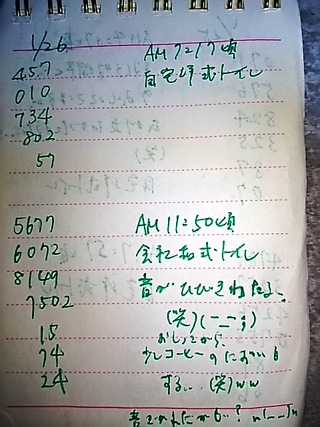 1/26
457 AM7:17頃
010 自宅洋式トイレ
734
802
57
5677 AM11:50頃
6072 会社和式トイレ
8149 音がひびきわたる、
7502 (笑)(-_-;)
15 おしっこから
74 少しコーヒーのにおいも
24 する...(笑)ww